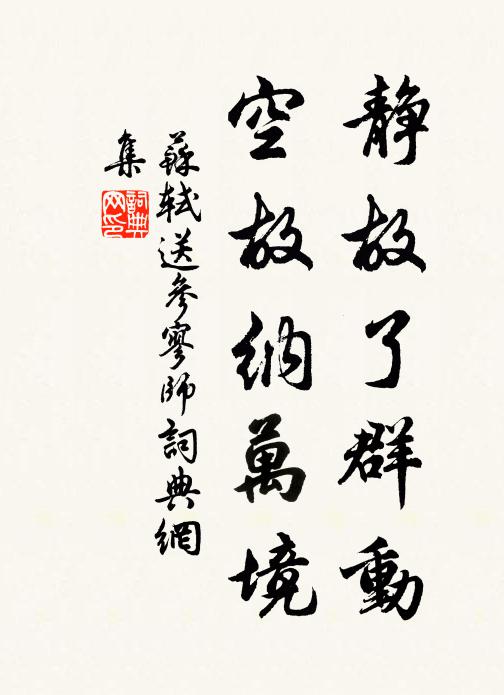 靜故了群動
空故納萬境
蘇軾送參寥師詞典網
集
詞典
网印